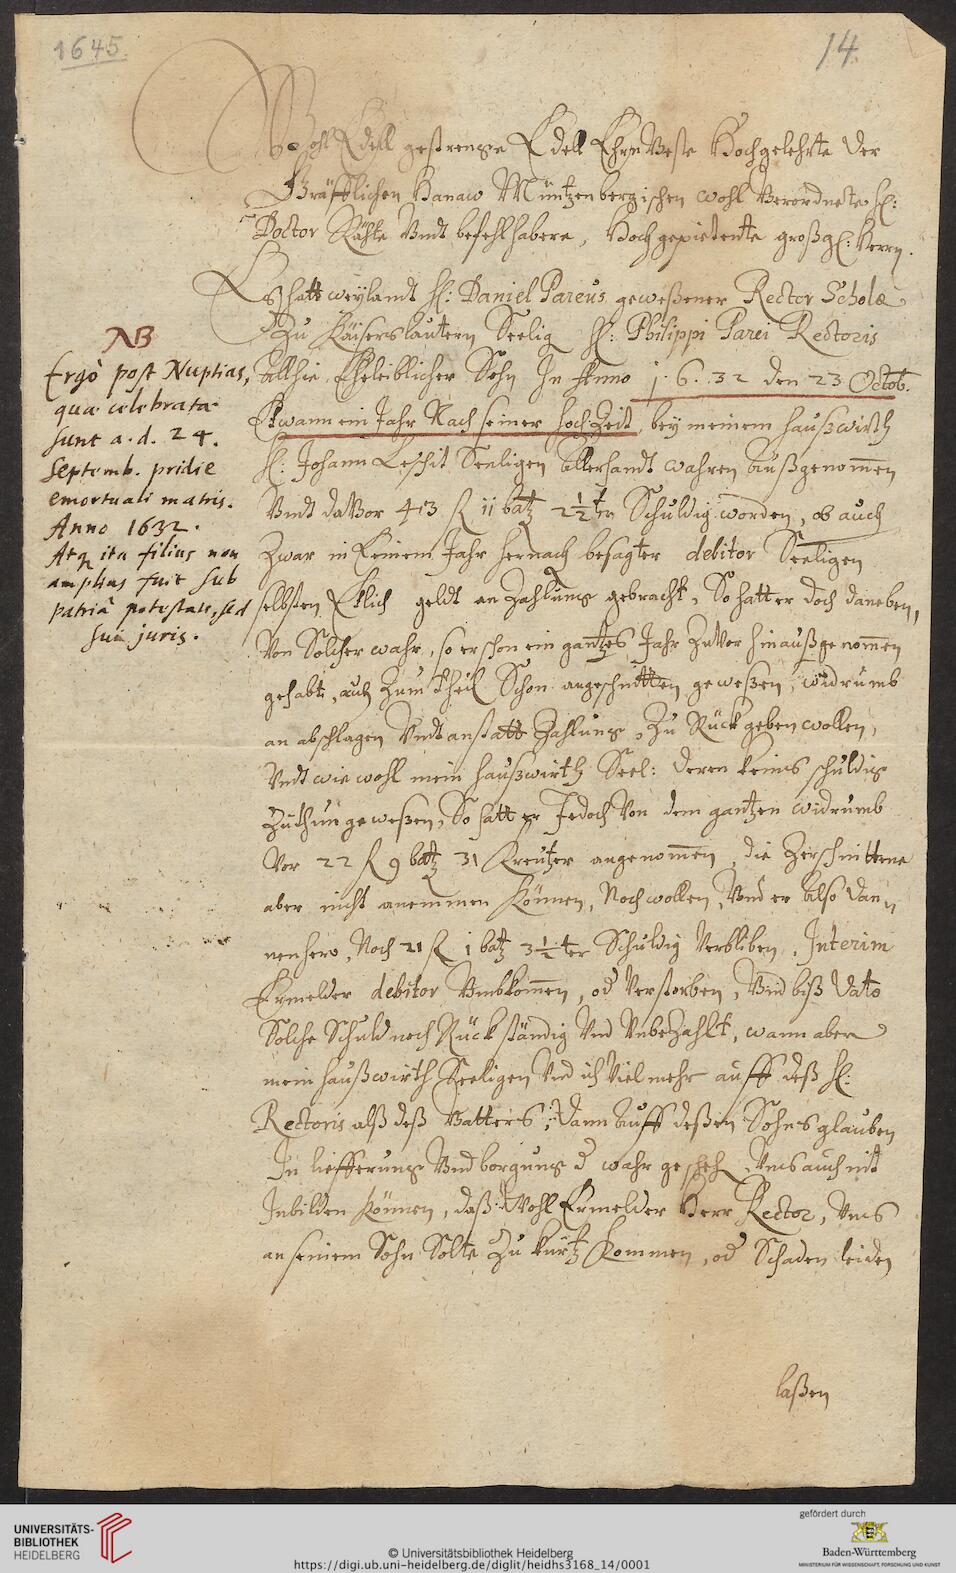 1645.
14.
Wohl Edell gestrenge Edell Ehrnveste Hochgelehrte der
Gräfflichen Hanaw Müntzenbergischen wohl Verordnete H:
Doctor Rähte Undt befehlhabere, Hoch gepietente großg: Herrn.
Es hatt weylandt H: Daniel Pareus geweßener Rector Scholæ
Zu Käiserslautern Seelig H: Philippi Parei Rectoris
allhie Eheleiblicher Sohn In Anno 1.6.32 den 23 Octob.
Etwann ein Jahr Nach seiner hochZeit, bey meinem haußwirth
H: Johann Seeligen Allerhandt wahren außgenommen
Undt davor 413 R 11 batz 2½ tr Schuldig worden, ob auch
Zwar in Keinem Jahr hernach besagter debitor Seeligen
selbsten Etlich geldt an Zahlung gebracht, So hatt er doch daneben,
Von Solcher wahr, so er schon ein gantzes Jahr Zuvor hinaußgenommen
gehabt, auch Zum theil Schon angeschnitten geweßen, widrumb
an abschlagen Undt anstatt Zahlung, Zu Rück geben wollen,
Undt wie wohl mein haußwirth Seel: deren keins schuldig
Zuthun geweßen, So hatt er Jedoch Von dem gantzen widrumb
Vor 22 R 9 batz 31 Kreutzer angenommen, die Zerschnittene
aber nicht annemmen Können, Noch wollen, Und er Also dan
nenhero, Noch 21 R 1 batz 3½ ter Schuldig Verbliben, Interim
Ermelder debitor Umbkommen, od Verstorben, Und biß dato
Solche Schuld noch Rückständig Und Unbezahlt, wann aber
mein haußwirth Seeligen Und ich Viel mehr auff deß H:
Rectoris alß deß Vatters, Dann Auff deßen Sohns glauben
In liefferung Und borgung d wahr gesehen, Uns auch nit
Inbilden Können, daß Wohl Ermelder Herr Rector, Uns
an seinem Sohn Solte Zu kurtz Kommen, od Schaden leiden
laßen
NB
Ergò post Nuptias,
quæ celebratæ
sunt a. d. 24.
Septemb. pridie
emortuali matris.
Anno 1632.
Atq ita filius non
amplius fuit sub
patriâ potestate, sed
sui juris.
UNIVERSITÄTS-
BIBLIOTHEK
HEIDELBERG
© Universitätsbibliothek Heidelberg
https://digi.ub.uni-heidelberg.de/diglit/heidhs3168_14/0001
gefördert durch
Baden-Württemberg
MINISTERIUM FÜR WISSENSCHAFT, FORSCHUNG UND KUNST